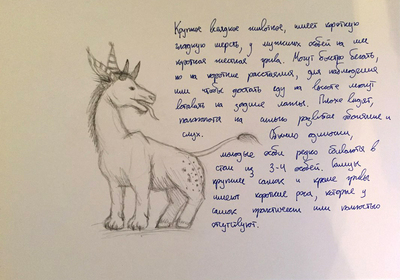 Крупное всеядное животное, имеет короткую
гладкую шерсть, у мужских особей на шее
короткая жесткая грива. Могут быстро бегать,
но на короткие расстояния, для наблюдения
или чтобы достать еду на высоте могут
вставать на задние лапы. Плохо видят,
полагаются на сильно развитые обоняние и
слух. Обычно одиночки,
молодые особи редко сбиваются в
стаи из 3-4 особей. Самцы
крупнее самок и кроме гривы
имеют короткие рога, которые у
самок практически или полностью
отсутствуют.